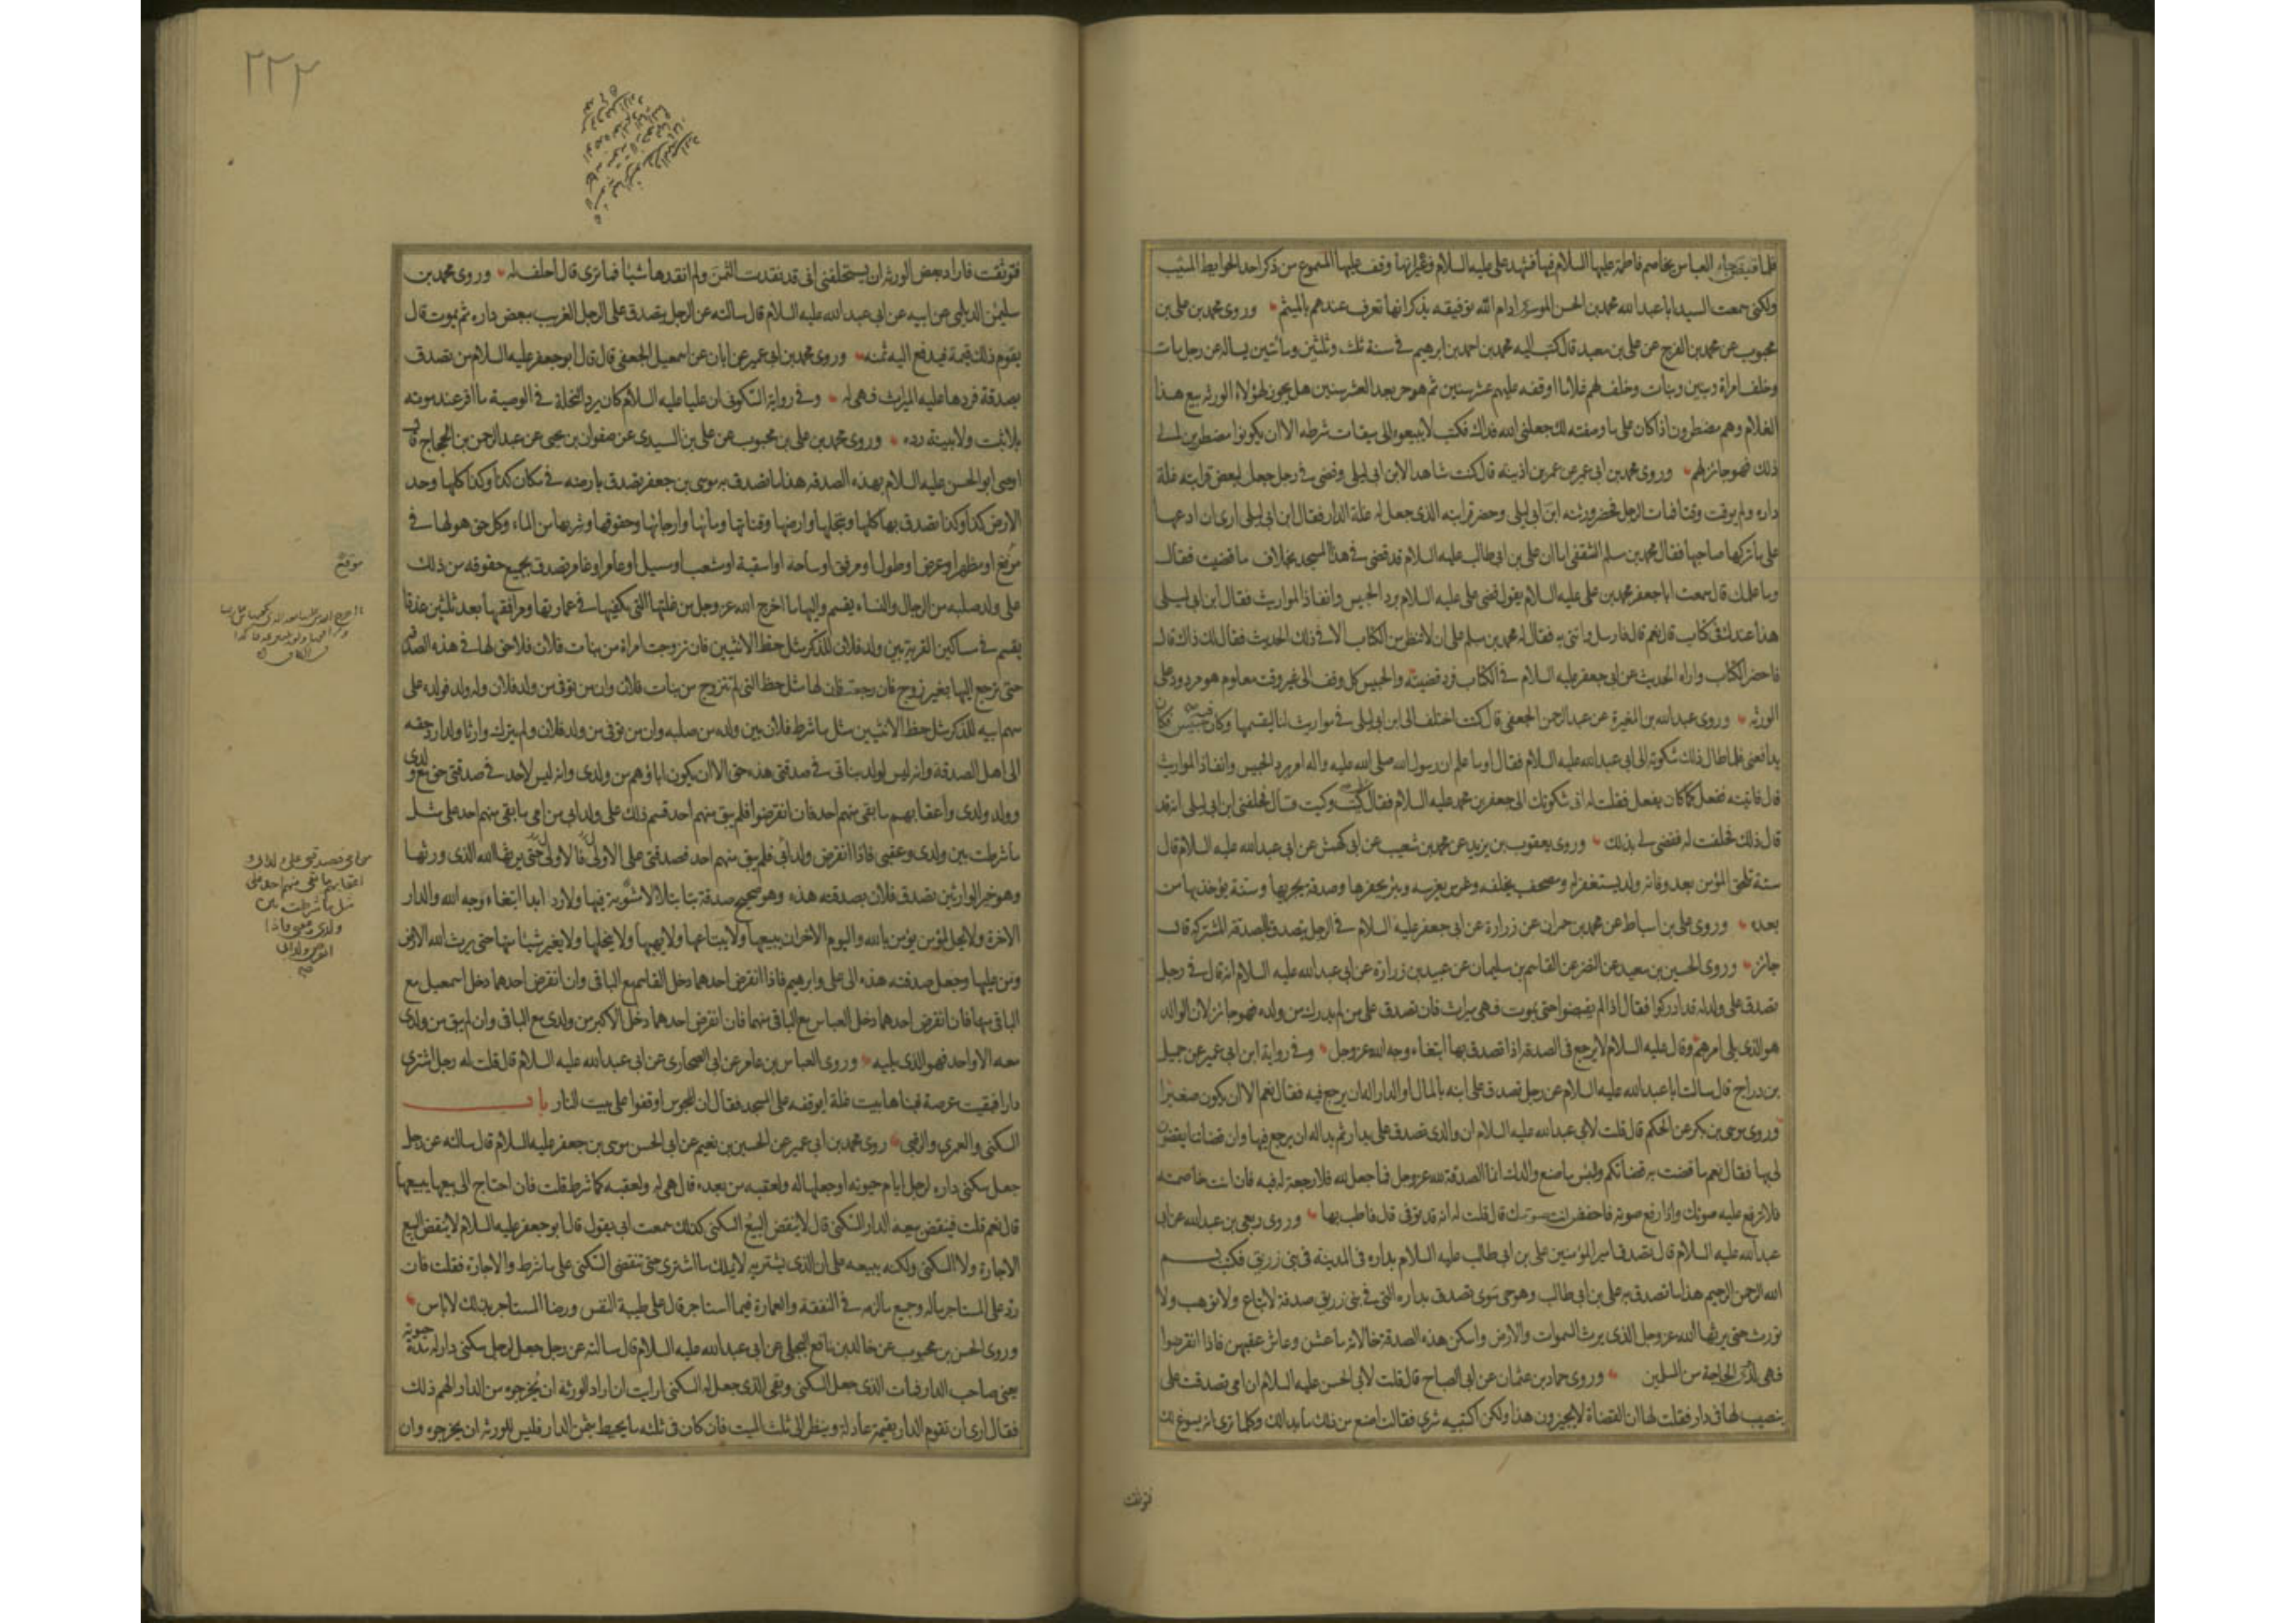 فلما قبض جاء العباس يخاصم فاطمة عليها السلام فيها فشهد علي عليه السلام وغيره انها وقف عليها المسموع من ذكر احد الحوايط الميثب
ولكني سمعت السيد ابا عبد الله محمد بن الحسن الموسوي ادام الله توفيقه يذكر انها تعرف عندهم بالميثم وروى محمد بن علي بن
محبوب عن محمد بن الفرج عن علي بن معبد قال كتب اليه محمد بن احمد بن ابرهيم في سنة ثلث وثلثين ومأتين يساله عن رجل مات
وخلف امراة وبنين وبنات وخلف لهم غلاما اوقفه عليهم عشر سنين ثم هو حر بعد العشر سنين هل يجوز لهؤلاء الورثه بيع هذا
الغلام وهم مضطرون اذا كان على ما وصفته لك جعلني الله فداك فكتب لا يبيعوه الى ميقات شرطه الا ان يكونوا مضطرين الى
ذلك فهو جائز لهم وروى محمد بن ابي عمير عن عمر بن اذينه قال كنت شاهدا لابن ابي ليلى وقضى في رجل جعل لبعض قرابته غلة
داره ولم يوقت وقتا فمات الرجل فحضر ورثته ابن ابي ليلى وحضر قرابته الذي جعل له غلة الدار فقال ابن ابي ليلى ارى ان ادعها
على ما تركها صاحبها فقال محمد بن مسلم الثقفي اما ان علي بن ابي طالب عليه السلام قد قضى في هذا المسجد بخلاف ما قضيت فقال
وما علمك قال سمعت ابا جعفر محمد بن علي عليه السلام يقول قضى علي عليه السلام برد الحبيس وانفاذ المواريث فقال ابن ابي ليلى
هذا عندك في كتاب قال نعم قال فارسل وائتني به فقال له محمد بن مسلم على ان لا تنظر من الكتاب الا في ذلك الحديث فقال لك ذاك قال
فاحضر الكتاب واراه الحديث عن ابي جعفر عليه السلام في الكتاب فرد قضيته والحبيس كل وقف الى غير وقت معلوم هو مردود على
الورثه وروى عبد الله بن المغيرة عن عبد الرحمن الجعفي قال كنت اختلف الى ابن ابي ليلى في مواريث لنا ليقسمها وكان فيه حبيس فكان
يدافعني فلما طال ذلك شكوته الى ابي عبد الله عليه السلام فقال اوما علم ان رسول الله صلى الله عليه واله امر برد الحبيس وانفاذ المواريث
قال فاتيته ففعل كما كان يفعل فقلت له اني شكوتك الى جعفر بن محمد عليه السلام فقال كيت وكيت قال فحلفني ابن ابي ليلى انه قد
قال ذلك فحلفت له فقضى لي بذلك وروى يعقوب بن يزيد عن محمد بن شعيب عن ابي كهمش عن ابي عبد الله عليه السلام قال
ستة تلحق المؤمن بعد وفاته ولد يستغفر له ومصحف يخلفه وغرس يغرسه وبئر يحفرها وصدقة يجريها وسنة يؤخذ بها من
بعده وروى علي بن اسباط عن محمد بن حمران عن زرارة عن ابي جعفر عليه السلام في الرجل يتصدق بالصدقة المشتركة قال
جائز وروى الحسين بن سعيد عن النضر عن القاسم بن سليمان عن عبيد بن زرارة عن ابي عبد الله عليه السلام انه قال في رجل
تصدق على ولد له قد ادركوا فقال اذا لم يقبضوا حتى يموت فهي ميراث فان تصدق على من لم يدرك من ولده فهو جائز لان الوالد
هو الذي يلي امرهم وقال عليه السلام لا يرجع في الصدقة اذا تصدق بها ابتغاء وجه الله عز وجل وفي رواية ابن ابي عمير عن جميل
بن دراج قال سالت ابا عبد الله عليه السلام عن رجل تصدق على ابنه بالمال او الدار اله ان يرجع فيه فقال نعم الا ان يكون صغيرا
وروى موسى بن بكر عن الحكم قال قلت لابي عبد الله عليه السلام ان والدي تصدق علي بدار ثم بدا له ان يرجع فيها وان قضاتنا يقضون
لي بها فقال نعم ما قضت به قضاتكم وبئس ما صنع والدك انما الصدقة لله عز وجل فما جعل لله فلا رجعة له فيه فان انت خاصمته
فلا ترفع عليه صوتك واذا رفع صوته فاخفض انت صوتك قال قلت له انه قد توفى قال فاطب بها وروى ربعي بن عبد الله عن ابي
عبد الله عليه السلام قال تصدق امير المؤمنين علي بن ابي طالب عليه السلام بداره في المدينة في بني زريق فكتب بسم
الله الرحمن الرحيم هذا ما تصدق به علي بن ابي طالب وهو حي سوى تصدق بداره التي في بني زريق صدقة لا تباع ولا توهب ولا
تورث حتى يرثها الله عز وجل الذي يرث السموات والارض واسكن هذه الصدقة خالاته ما عشن وعاش عقبهن فاذا انقرضوا
فهي لذوي الحاجة من المسلمين وروى حماد بن عثمان عن ابي الصباح قال قلت لابي الحسن عليه السلام ان امي تصدقت علي
بنصيب لها في دار فقلت لها ان القضاة لا يجيزون هذا ولكن اكتبيه شرى فقالت اصنع من ذلك ما بدا لك وكلما ترى انه يسوغ لك
فتوثقت
٢٢٢
فتوثقت فاراد بعض الورثه ان يستحلفني اني قد نقدت الثمن ولم انقدها شيئا فما ترى قال احلف له وروى محمد بن
سليمن الديلمي عن ابيه عن ابي عبد الله عليه السلام قال سالته عن الرجل يتصدق على الرجل الغريب ببعض داره ثم يموت قال
يقوم ذلك قيمة فيدفع اليه ثمنه وروى محمد بن ابي عمير عن ابان عن اسمعيل الجعفي قال قال ابو جعفر عليه السلام من تصدق
بصدقة فردها عليه الميراث فهي له وفي رواية السكوني ان عليا عليه السلام كان يرد النحلة في الوصية ما اقر عند موته
بلا ثبت ولا بينة رده وروى محمد بن علي بن محبوب عن علي بن السندي عن صفوان بن يحيى عن عبد الرحمن بن الحجاج قال
اوصى ابو الحسن عليه السلام بهذه الصدقة هذا ما تصدق به موسى بن جعفر تصدق بارضه في مكان كذا وكذا كلها وحد
الارض كذا وكذا تصدق بها كلها وبنخلها وارضها وقناتها ومائها وارجائها وحقوقها وشربها من الماء وكل حق هو لها في
مرفع او مظهر او عرض او طول او مرفق او ساحة او اسقية او شعب او مسيل او عامر او غامر تصدق بجميع حقوقه من ذلك
على ولد صلبه من الرجال والنساء يقسم واليها ما اخرج الله عز وجل من غلتها التي يكفيها في عمارتها ومرافقها بعد ثلثين عذقا
يقسم في مساكين القرية بين ولد فلان للذكر مثل حظ الانثيين فان تزوجت امراة من بنات فلان فلا حق لها في هذه الصدقة
حتى ترجع اليها بغير زوج فان رجعت فان لها مثل حظ التي لم تتزوج من بنات فلان وان من توفى من ولد فلان وله ولد فولده على
سهم ابيه للذكر مثل حظ الانثيين مثل ما شرط فلان بين ولده من صلبه وان من توفى من ولد فلان ولم يترك وارثا ولدا رد حقه
الى اهل الصدقة وانه ليس لولد بناتي في صدقتي هذه حق الا ان يكون اباؤهم من ولدي وانه ليس لاحد في صدقتي حق مع ولدي
وولد ولدي واعقابهم ما بقي منهم احد فان انقرضوا فلم يبق منهم احد قسم ذلك على ولد ابي من امي ما بقي منهم احد على مثل
ما شرطت بين ولدي وعقبي فاذا انقرض ولد ابي فلم يبق منهم احد فصدقتي على الاولى فالاولى حتى يرثها الله الذي ورثها
وهو خير الوارثين تصدق فلان بصدقته هذه وهو صحيح صدقة بتا بتلا لا مشوبة فيها ولا رد ابدا ابتغاء وجه الله والدار
الاخرة ولا يحل لمؤمن يؤمن بالله واليوم الاخر ان يبيعها ولا يبتاعها ولا يهبها ولا ينحلها ولا يغير شيئا منها حتى يرث الله الارض
ومن عليها وجعل صدقته هذه الى علي وابرهيم فاذا انقرض احدهما دخل القاسم مع الباقي وان انقرض احدهما دخل اسمعيل مع
الباقي منهما فان انقرض احدهما دخل العباس مع الباقي منهما فان انقرض احدهما دخل الاكبر من ولدي مع الباقي وان لم يبق من ولدي
معه الا واحد فهو الذي يليه وروى العباس بن عامر عن ابي الصحارى عن ابي عبد الله عليه السلام قال قلت له رجل اشترى
دارا فبقيت عرصة فبناها بيت غلة ايوقفه على المسجد فقال ان المجوس اوقفوا على بيت النار باب
السكنى والعمرى والرقبى روى محمد بن ابي عمير عن الحسين بن نعيم عن ابي الحسن موسى بن جعفر عليه السلام قال سالته عن رجل
جعل سكنى داره لرجل ايام حيوته او جعلها له ولعقبه من بعده قال هي له ولعقبه كما شرط قلت فان احتاج الى بيعها يبيعها
قال نعم قلت فينقض بيعه الدار السكنى قال لا ينقض البيع السكنى كذلك سمعت ابي يقول قال ابو جعفر عليه السلام لا ينقض البيع
الاجارة ولا السكنى ولكنه يبيعه على ان الذي يشتريه لا يملك ما اشترى حتى تنقضي السكنى على ما شرط والاجارة فقلت فان
رد على المستاجر ماله وجميع ما لزمه في النفقة والعمارة فيما استاجر قال على طيبة النفس ورضا المستاجر بذلك لا باس
وروى الحسن بن محبوب عن خالد بن نافع البجلي عن ابي عبد الله عليه السلام قال سالته عن رجل جعل لرجل سكنى دار له مدة حيوته
يعني صاحب الدار فمات الذي جعل السكنى وبقي الذي جعل له السكنى ارايت ان اراد الورثة ان يخرجوه من الدار الهم ذلك
فقال ارى ان تقوم الدار بقيمة عادلة وينظر الى ثلث الميت فان كان في ثلثه ما يحيط بثمن الدار فليس للورثه ان يخرجوه وان